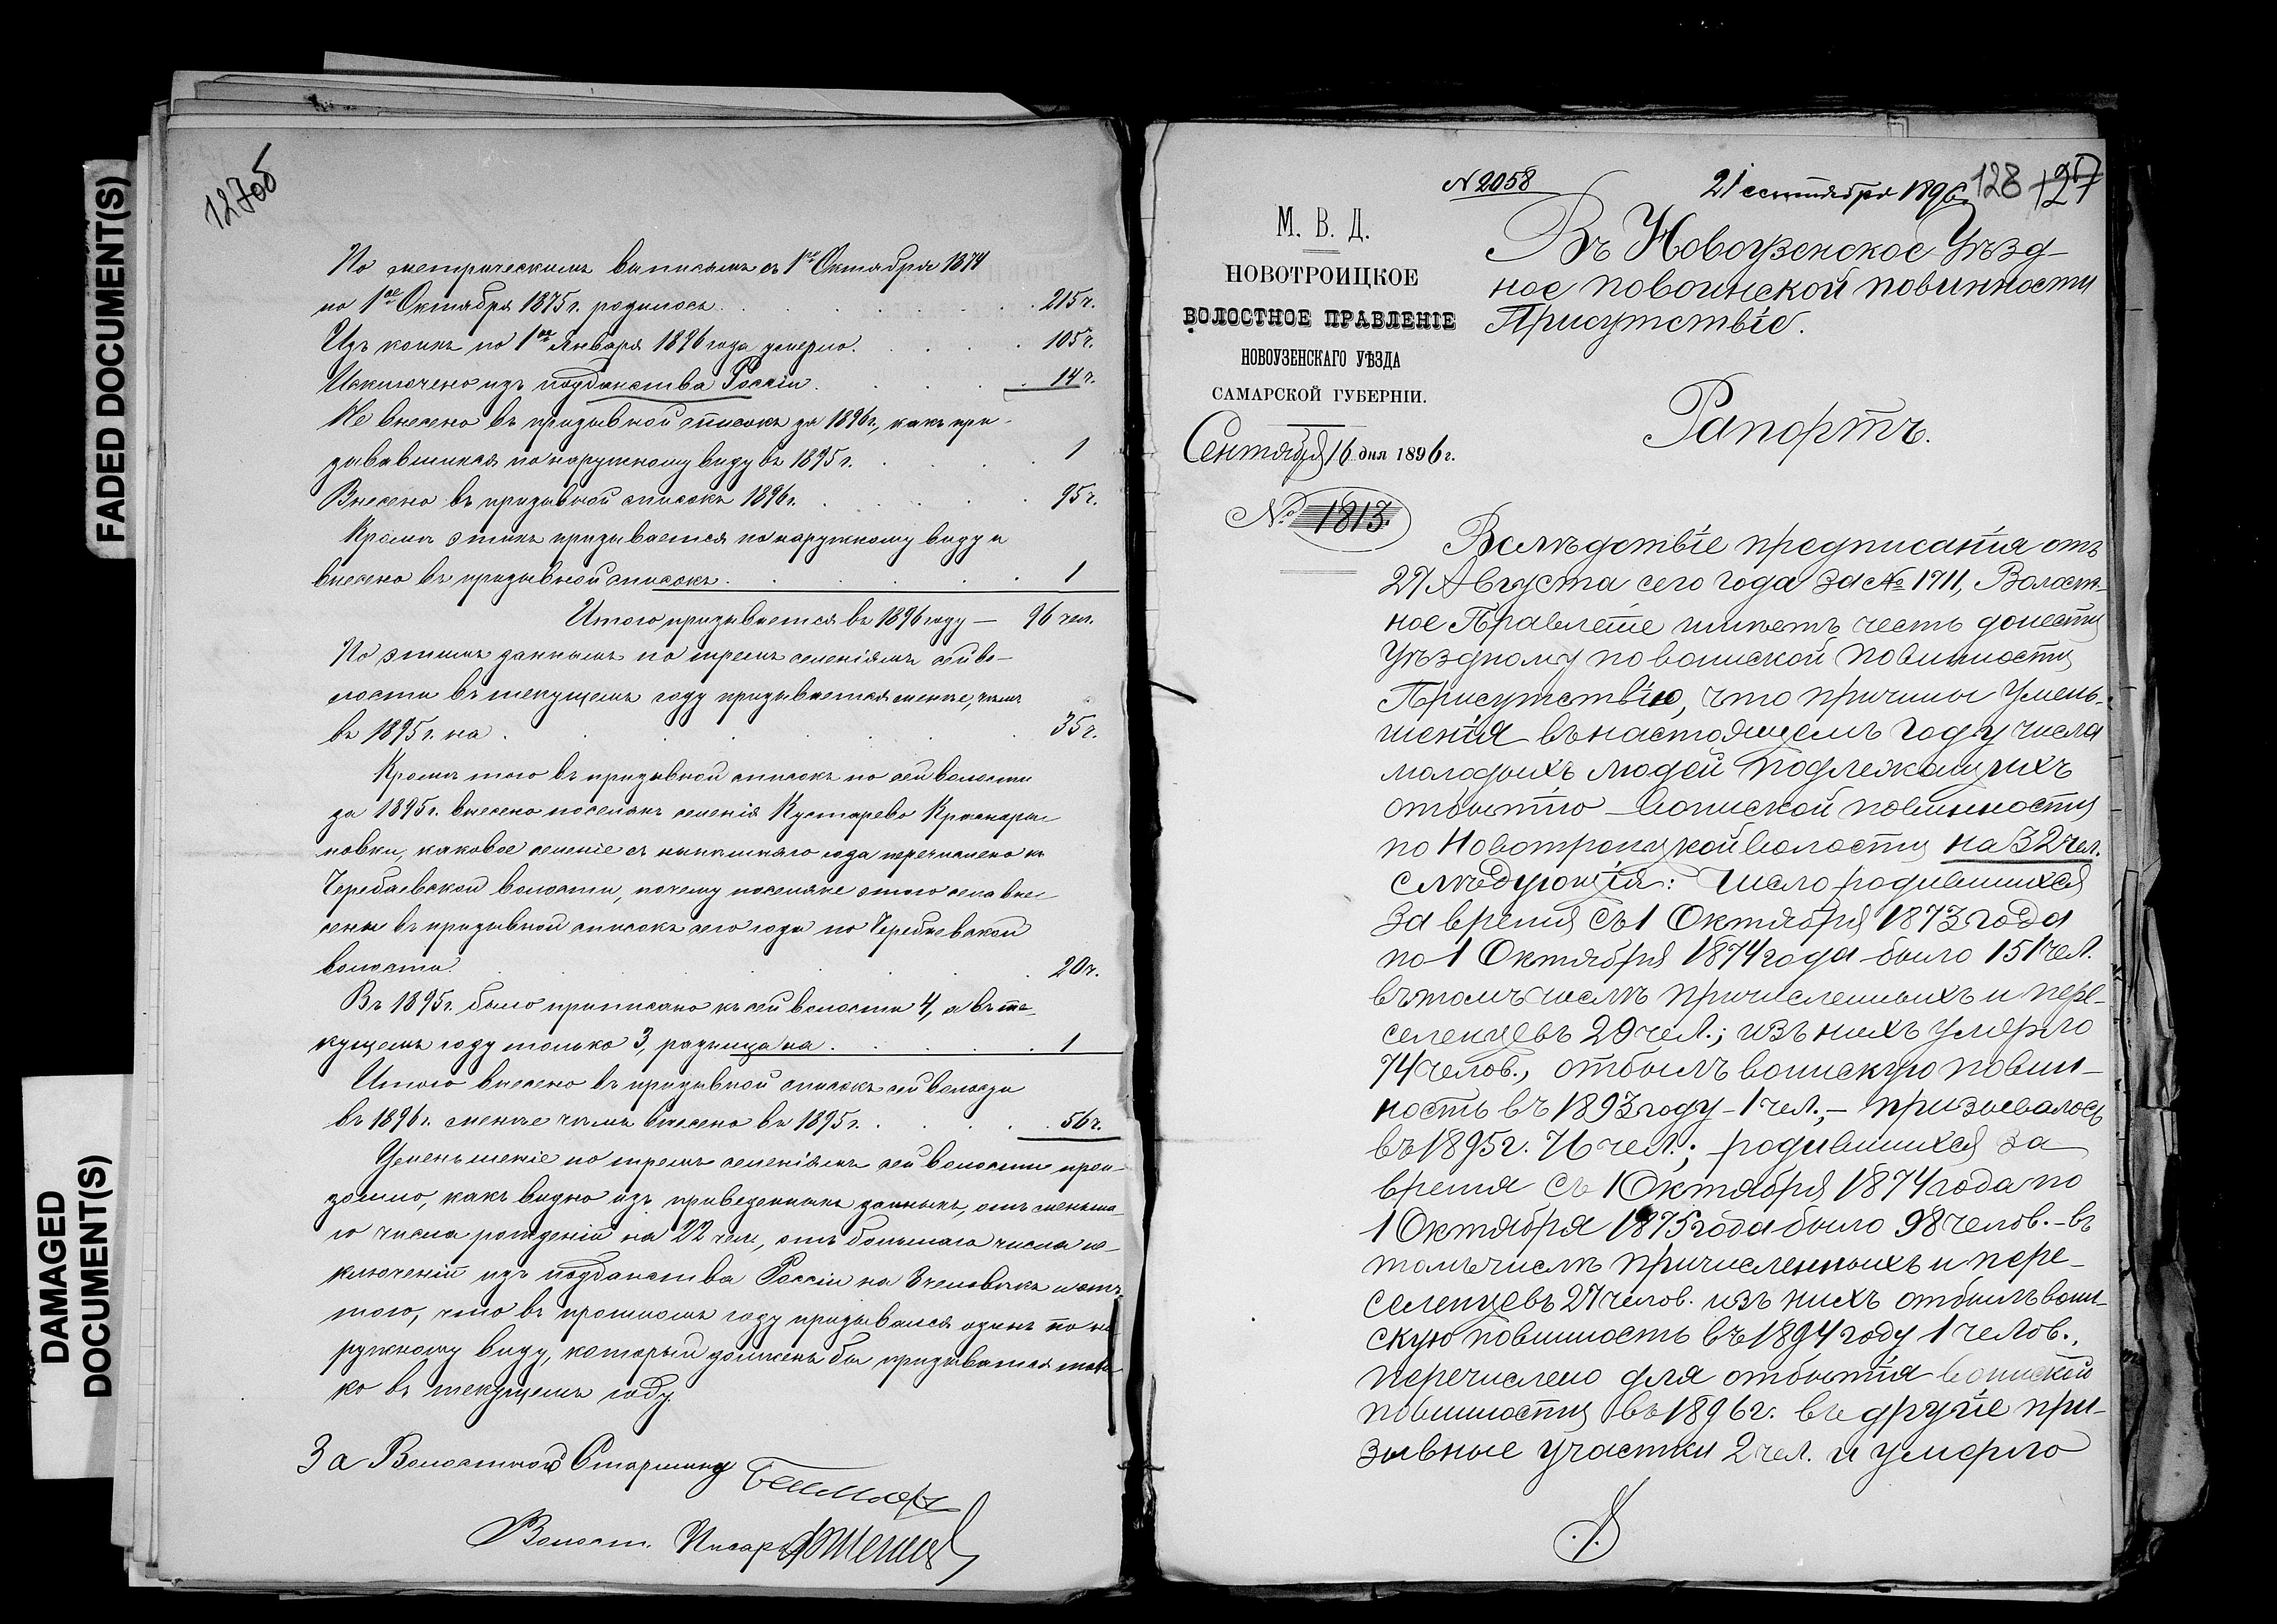 FADED DOCUMENT(S)
DAMAGED
DOCUMENT(S)
127об
По метрическимъ выписямъ съ 1го Октября 1874
по 1ое Октября 1875г. родилось . . . . . . 215ч.
Изъ коихъ по 1ое Января 1896 года умерло . . . . 105ч.
Исключено изъ подданства Россіи . . . . 14ч.
Не внесено въ призывной списокъ за 1896г., какъ при-
зывавшихся по наружному виду въ 1895г. . . . . 1
Внесено въ призывной списокъ 1896г. . . . . 95ч.
Кромѣ этихъ призывается по наружному виду и
внесено въ призывной списокъ . . . . . . 1
Итого призывается въ 1896 году — 96 чел.
По этимъ даннымъ по тремъ селеніямъ сей во-
лости въ текущемъ году призывается менѣе, чѣмъ
въ 1895г. на . . . . . . 35ч.
Кромѣ того въ призывной списокъ по сей волости
за 1895г. внесено поселянъ селенія Кустарево Красноры-
новки, каковое селеніе съ нынѣшняго года перечислено къ
Черебаевской волости, почему поселяне этого села вне-
сены въ призывной списокъ сего года по Черебаевской
волости . . . . . . 20ч.
Въ 1895г. было приписано къ сей волости 4, а въ те-
кущемъ году только 3, разница на . . . . . 1
Итого внесено въ призывной списокъ сей волости
въ 1896г. менѣе чѣмъ внесено въ 1895г. . . . . 56ч.
Уменьшеніе по тремъ селеніямъ сей волости прои-
зошло, какъ видно изъ приведенныхъ данныхъ, отъ меньша-
го числа рожденій на 22 чел., отъ большаго числа ис-
ключеній изъ подданства Россіи на человѣкъ и отъ
того, что въ прошломъ году призывался одинъ по на-
ружному виду, который долженъ бы призываться толь-
ко въ текущемъ году.
За Волостной Старшину
Волост. Писарь
N 2058
21 сентября 1896
128
127
М. В. Д.
НОВОТРОИЦКОЕ
ВОЛОСТНОЕ ПРАВЛЕНІЕ
НОВОУЗЕНСКАГО УѢЗДА
САМАРСКОЙ ГУБЕРНІИ.
Сентября 16 дня 1896 г.
№ 1813
Въ Новоузенское Уѣзд-
ное по воинской повинности
Присутствіе.
Рапортъ.
Вслѣдствіе предписанія отъ
27 Августа сего года за № 1711, Волост-
ное Правленіе имѣетъ честь донести
Уѣздному по воинской повинности
Присутствію, что причины умень-
шенія въ настоящемъ году числа
молодыхъ людей подлежащихъ
отбытію воинской повинности
по Новотроицкой волости на 32 чел.
слѣдующія: Число родившихся
за время съ 1 Октября 1873 года
по 1 Октября 1874 года было 151 чел.
въ томъ числѣ причисленныхъ и пере-
селенцевъ 29 чел.; изъ нихъ умерло
74 челов., отбылъ воинскую повин-
ность въ 1893 году - 1 чел.; - призывалось
въ 1895г. 76 чел.; родившихся за
время съ 1 Октября 1874 года по
1 Октября 1875 года было 98 челов. - въ
томъ числѣ причисленныхъ и пере-
селенцевъ 27 челов. изъ нихъ отбылъ воин-
скую повинность въ 1894 году 1 челов.,
перечислено для отбытія воинской
повинности въ 1896г. въ другіе при-
зывные участки 2 чел. и умерло